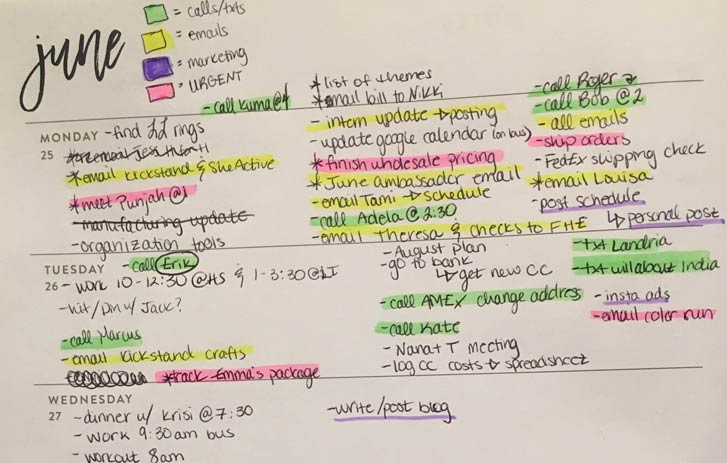 june
= calls/txts
= emails
= marketing
= URGENT
- call Kuma @
* list of themes
* email bill to Nikki
- intern update → posting
- update google calendar (on bus)
* finish wholesale pricing
* June ambassador email
- email Tami → schedule
- call Adela @ 2:30
- email Theresa & checks to FHE
- call Roger
- call Bob @ 2
- all emails
- ship orders
- FedEx shipping check
* email Louisa
- post schedule
↳ personal post
MONDAY
25
- find rings
* email kickstand & SheActive
* meet Punjah @ 1
- manufacturing update
- organization tools
TUESDAY
26
- call Erik
- work 10-12:30 @ HS & 1-3:30 @ LI
- w/ Jack?
- call Marcus
- email kickstand crafts
* track Emma's package
- August plan
- go to bank
↳ get new CC
- call AMEX change address
- call Kate
- Nana + T meeting
- log CC costs → spreadsheet
- txt Landria
- txt will about India
- insta ads
- email color run
WEDNESDAY
27
- dinner w/ Krisi @ 7:30
- work 9:30am bus
- workout 8am
- write/post blog